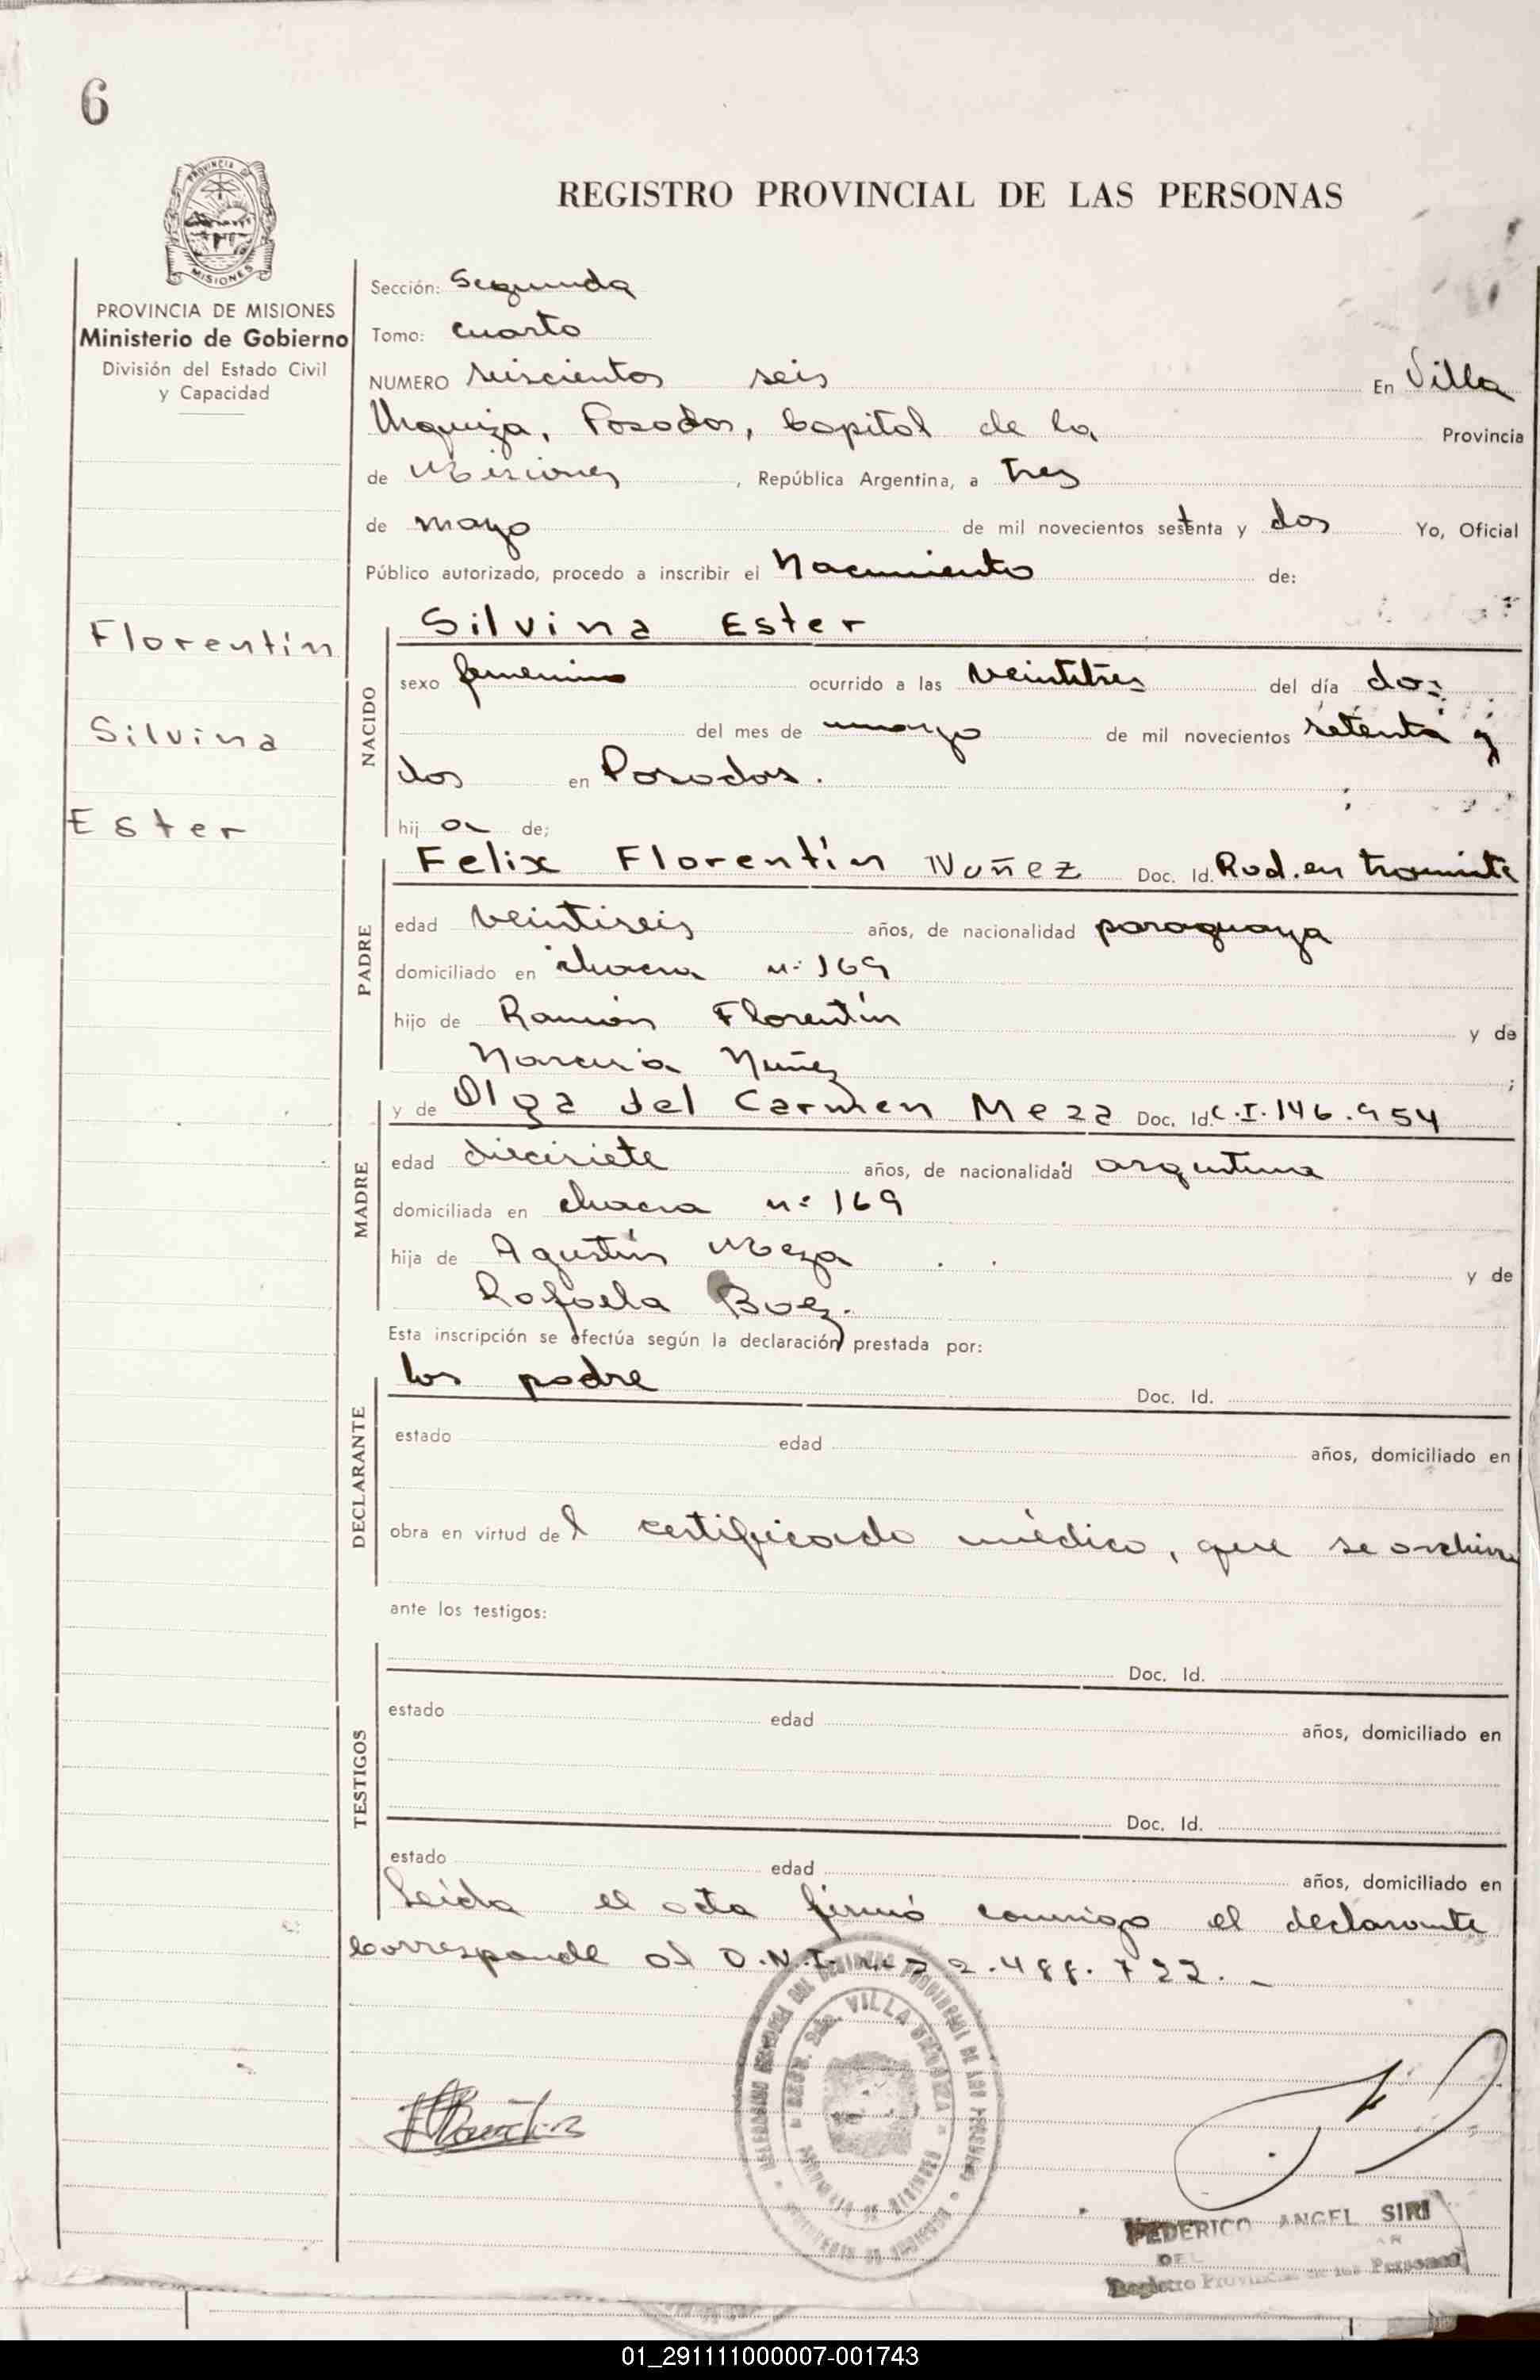 6
PROVINCIA DE
MISIONES
REGISTRO PROVINCIAL DE LAS PERSONAS
PROVINCIA DE MISIONES
Ministerio de Gobierno
División del Estado Civil
y Capacidad
Sección: Segunda
Tomo: cuarto
NUMERO seiscientos seis En Villa
Urquiza, Posadas, Capital de la Provincia
de Misiones, República Argentina, a tres
de mayo de mil novecientos setenta y dos Yo, Oficial
Público autorizado, procedo a inscribir el Nacimiento de:
Florentín
Silvina
Ester
NACIDO
Silvina Ester
sexo femenino ocurrido a las veintitres del día dos
del mes de marzo de mil novecientos setenta y
dos en Posadas.
hij a de;
PADRE
Felix Florentín Nuñez Doc. Id. Rad. en tramite
edad veintiseis años, de nacionalidad paraguaya
domiciliado en chacra n: 169
hijo de Ramón Florentín y de
Narcisa Nuñez ;
MADRE
y de Olga del Carmen Meza Doc. Id. C.I. 146.954
edad diecisiete años, de nacionalidad argentina
domiciliada en chacra n: 169
hija de Agustín Meza y de
Rafaela Baez.
Esta inscripción se efectúa según la declaración prestada por:
DECLARANTE
los padre Doc. Id.
estado edad años, domiciliado en
obra en virtud del certificado médico, que se archiva
ante los testigos:
TESTIGOS
Doc. Id.
estado edad años, domiciliado en
Doc. Id.
estado edad años, domiciliado en
Leída el acta firmó conmigo el declarante
Corresponde al D.N.I. n: 22.488.722. _
VILLA URQUIZA
PROVINCIA DE MISIONES
FEDERICO ANGEL SIRI
DEL
Registro Provincial de las Personas
01_291111000007-001743